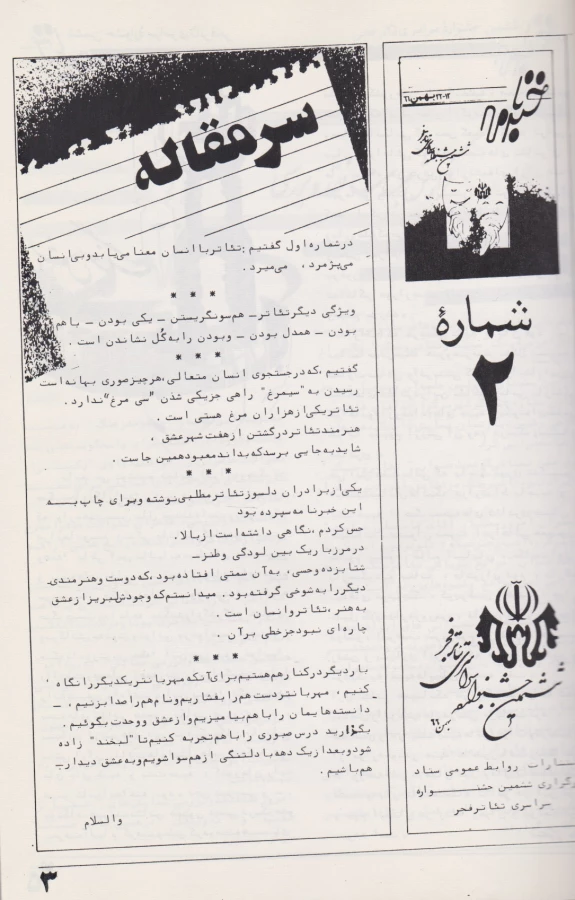 سرمقاله
در شماره اول گفتیم: تئاتر با انسان معنا می‌یابد و بی‌انسان
می‌پژمرد، می‌میرد.
* * *
ویژگی دیگر تئاتر ـ هم‌سو نگریستن ـ یکی بودن ـ با هم
بودن ـ همدل بودن ـ و بودن را به گُل نشاندن است.
* * *
گفتیم، که در جستجوی انسان متعالی، هرچیز صوری بهانه است
رسیدن به "سیمرغ" راهی جز یکی شدن "سی مرغ" ندارد.
تئاتر یکی از هزاران مرغ هستی است.
هنرمند تئاتر در گشتن از هفت شهر عشق،
شاید به جایی برسد که بداند معبود همین جاست.
* * *
یکی از برادران دلسوز تئاتر مطلبی نوشته و برای چاپ به
این خبرنامه سپرده بود
حس کردم، نگاهی داشته است از بالا.
در مرز باریک بین لودگی و طنز ـ
شتابزده و حسی، به آن سمتی افتاده بود، که دوست و هنرمندی
دیگر را به شوخی گرفته بود. میدانستم که وجودش لبریز از عشق
به هنر، تئاتر و انسان است.
چاره‌ای نبود جز خطی بر آن.
* * *
بار دیگر در کنار هم هستیم برای آنکه مهربانتر یکدیگر را نگاه
کنیم، مهربانتر دست هم را بفشاریم و نام هم را صدا بزنیم، ـ
دانسته‌هایمان را با هم بیامیزیم و از عشق و وحدت بگوئیم.
بگذارید درس صبوری را با هم تجربه کنیم تا "لبخند" زاده
شود و بعد از یک دهه با دلتنگی از هم سوا شویم و به عشق دیدار ـ
هم باشیم.
والسلام
۳
خبرنامه
۱۲-۲۲ بهمن ۶۶
ششمین جشنواره سراسری تئاتر فجر
شمارهٔ
۲
ششمین جشنواره سراسری تئاتر فجر
بهمن ۶۶
روابط عمومی ستاد
برگزاری ششمین جشنواره
سراسری تئاتر فجر